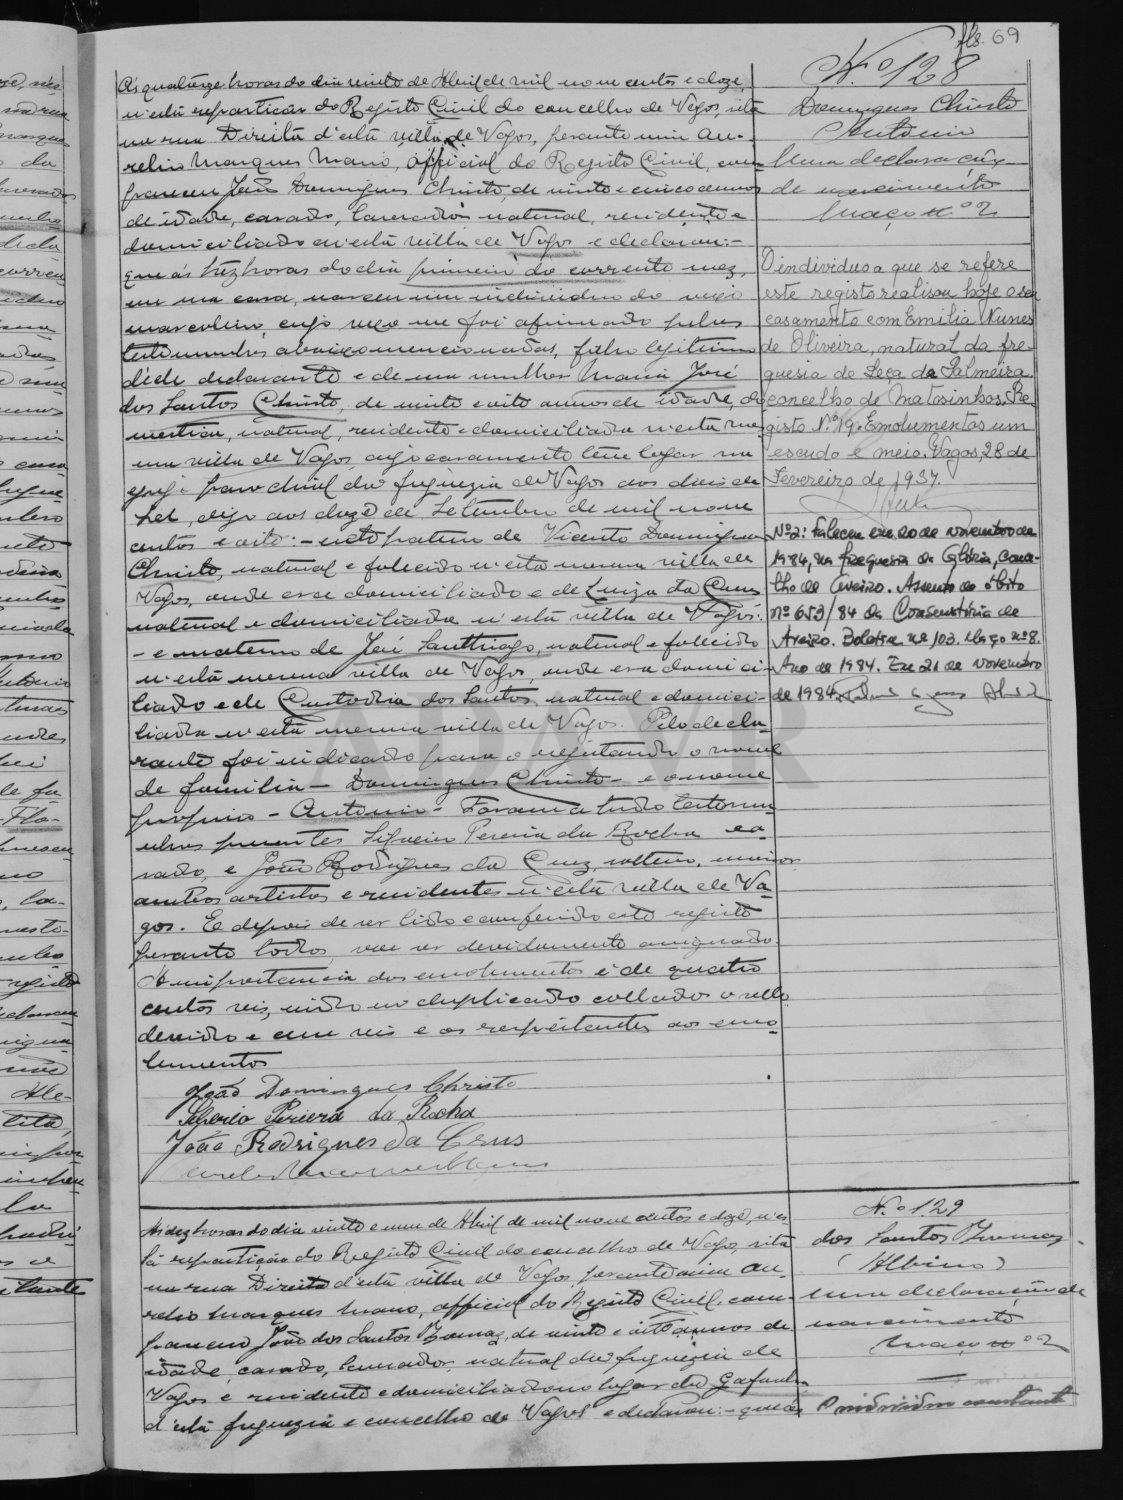 fls. 69
N.º 128
Domingues Christo
Antonio
Uma declaração
de nascimento
Maço n.º 2
Ás quatorze horas do dia vinte de Abril de mil nove centos e doze,
n'esta repartição do Registo Civil do concelho de Vagos, sita
na rua Direita d'esta villa de Vagos, perante mim Au-
relio Marques Mano, official do Registo Civil, com-
pareceu João Domingues Christo, de vinte e cinco annos
de idade, casado, lavrador natural, residente e
domiciliado n'esta villa de Vagos e declarou:-
que ás trez horas do dia primeiro do corrente mez,
em sua casa, nasceu um individuo do sexo
masculino, cujo sexo me foi afirmado pelas
testemunhas abaixo mencionadas, filho legitimo
d'elle declarante e de sua mulher Maria José
dos Santos Christo, de vinte e oito annos de idade, do-
mestica, natural, residente e domiciliada n'esta mes-
ma villa de Vagos cujo casamento teve logar na
egreja parochial da freguezia de Vagos aos dois de
Set, digo aos doze de Setembro de mil nove
centos e oito:- neto paterno de Vicente Domingues
Christo, natural e falecido n'esta mesma villa de
Vagos, onde era domiciliado e de Luiza da Cruz
natural e domiciliada n'esta villa de Vagos:
- e materno de José Santhiago, natural e falecido
n'esta mesma villa de Vagos, onde era domici-
liado e de Custodia dos Santos natural e domici-
liada n'esta mesma villa de Vagos. Pelo decla-
rante foi indicado para o registando o nome
de familia - Domingues Christo - e o nome
proprio - Antonio - Foram a tudo testemu-
nhas presentes Silverio Pereira da Rocha ca-
sado, e João Rodrigues da Cruz, solteiro, maior
ambos artistas e residentes n'esta villa de Va-
gos. E depois de ser lido e conferido este registo
perante todos, vae ser devidamente assignado.
A importancia dos emolumentos é de quatro
centos reis, sendo no duplicado collados o sello
devido e cem reis e os respeitantes aos emo-
lumentos
João Domingues Christo
Silverio Pereira da Rocha
João Rodrigues da Crus
O individuo a que se refere
este registo realisou hoje o seu
casamento com Emilia Nunes
de Oliveira, natural da fre-
guesia de Leça da Palmeira
concelho de Matosinhos. Re-
gisto N.º 19. Emolumentos um
escudo e meio. Vagos, 28 de
Fevereiro de 1937.
Nº2: Faleceu em 20 de novembro de
1984, na freguesia da Glória, conce-
lho de Aveiro. Assento de óbito
nº 653/84 da Conservatória de
Aveiro. Boletim nº 103. Maço nº 8.
Ano de 1984. Em 21 de novembro
de 1984.
ADAVR
N.º 129
dos Santos
(Albino)
Uma declaração de
nascimento
Maço nº 2
O individuo constante
Ás dez horas do dia vinte e um de Abril de mil nove centos e doze, n'es-
ta repartição do Registo Civil do concelho de Vagos, sita
na rua Direita d'esta villa de Vagos, perante mim Au-
relio Marques Mano, official do Registo Civil, com-
pareceu João dos Santos de vinte e oito annos de
idade, casado, lavrador natural da freguezia de
Vagos e residente e domiciliado no logar da Gafanha
d'esta freguezia e concelho de Vagos e declarou:- que ás